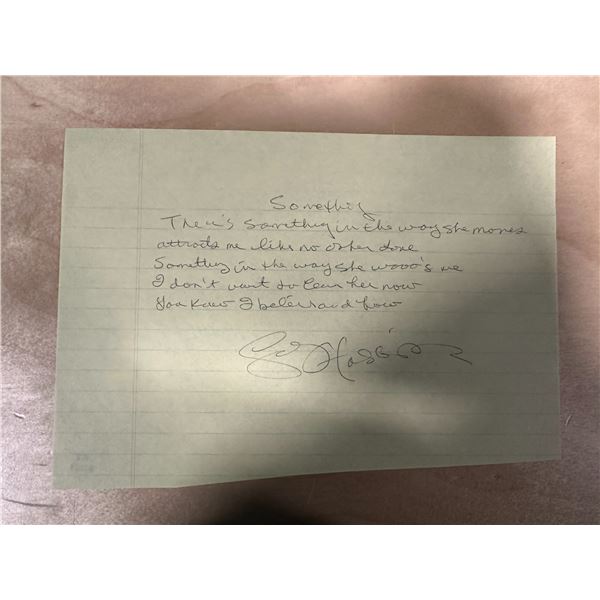 Something
There's something in the way she moves
attracts me like no other done
Something in the way she wooo's me
I don't want to lean her now
You know I beleive and how